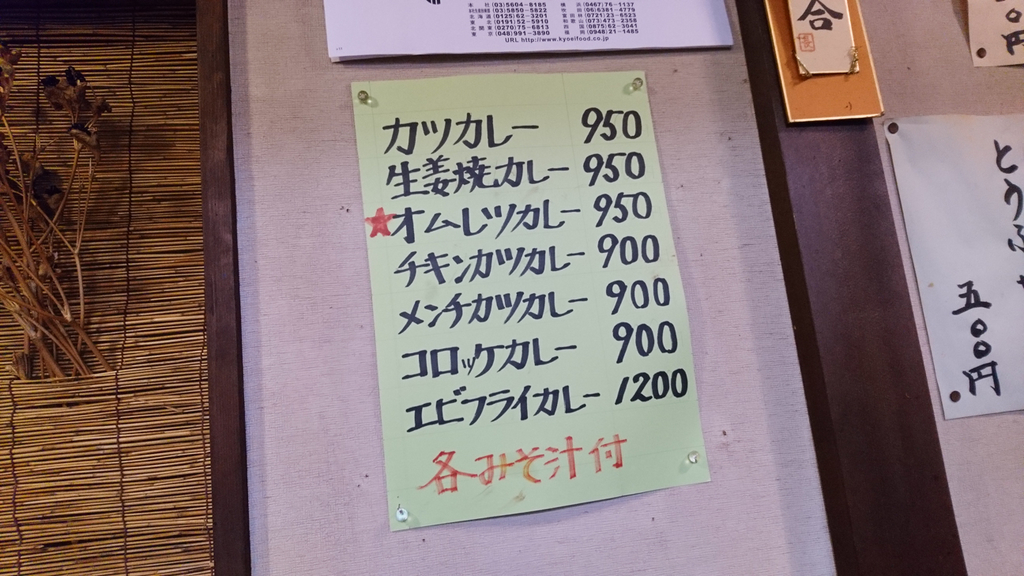 本 社 (03)5604-8185
(03)5850-5822
北 海 道 (0125)62-3201
東 北 (0191)52-5910
北 関 東 (0270)75-6813
東 京 (048)991-3890
横 浜 (0467)76-1137
(06)6381-4779
富 田 林 (0721)23-6523
和 歌 山 (073)473-2358
四 国 (0875)62-3041
福 岡 (0948)21-1485
URL http://www.kyoeifood.co.jp
カツカレー 950
生姜焼カレー 950
★オムレツカレー 950
チキンカツカレー 900
メンチカツカレー 900
コロッケカレー 900
エビフライカレー 1200
各みそ汁付
合
円
とうふ
五〇〇円